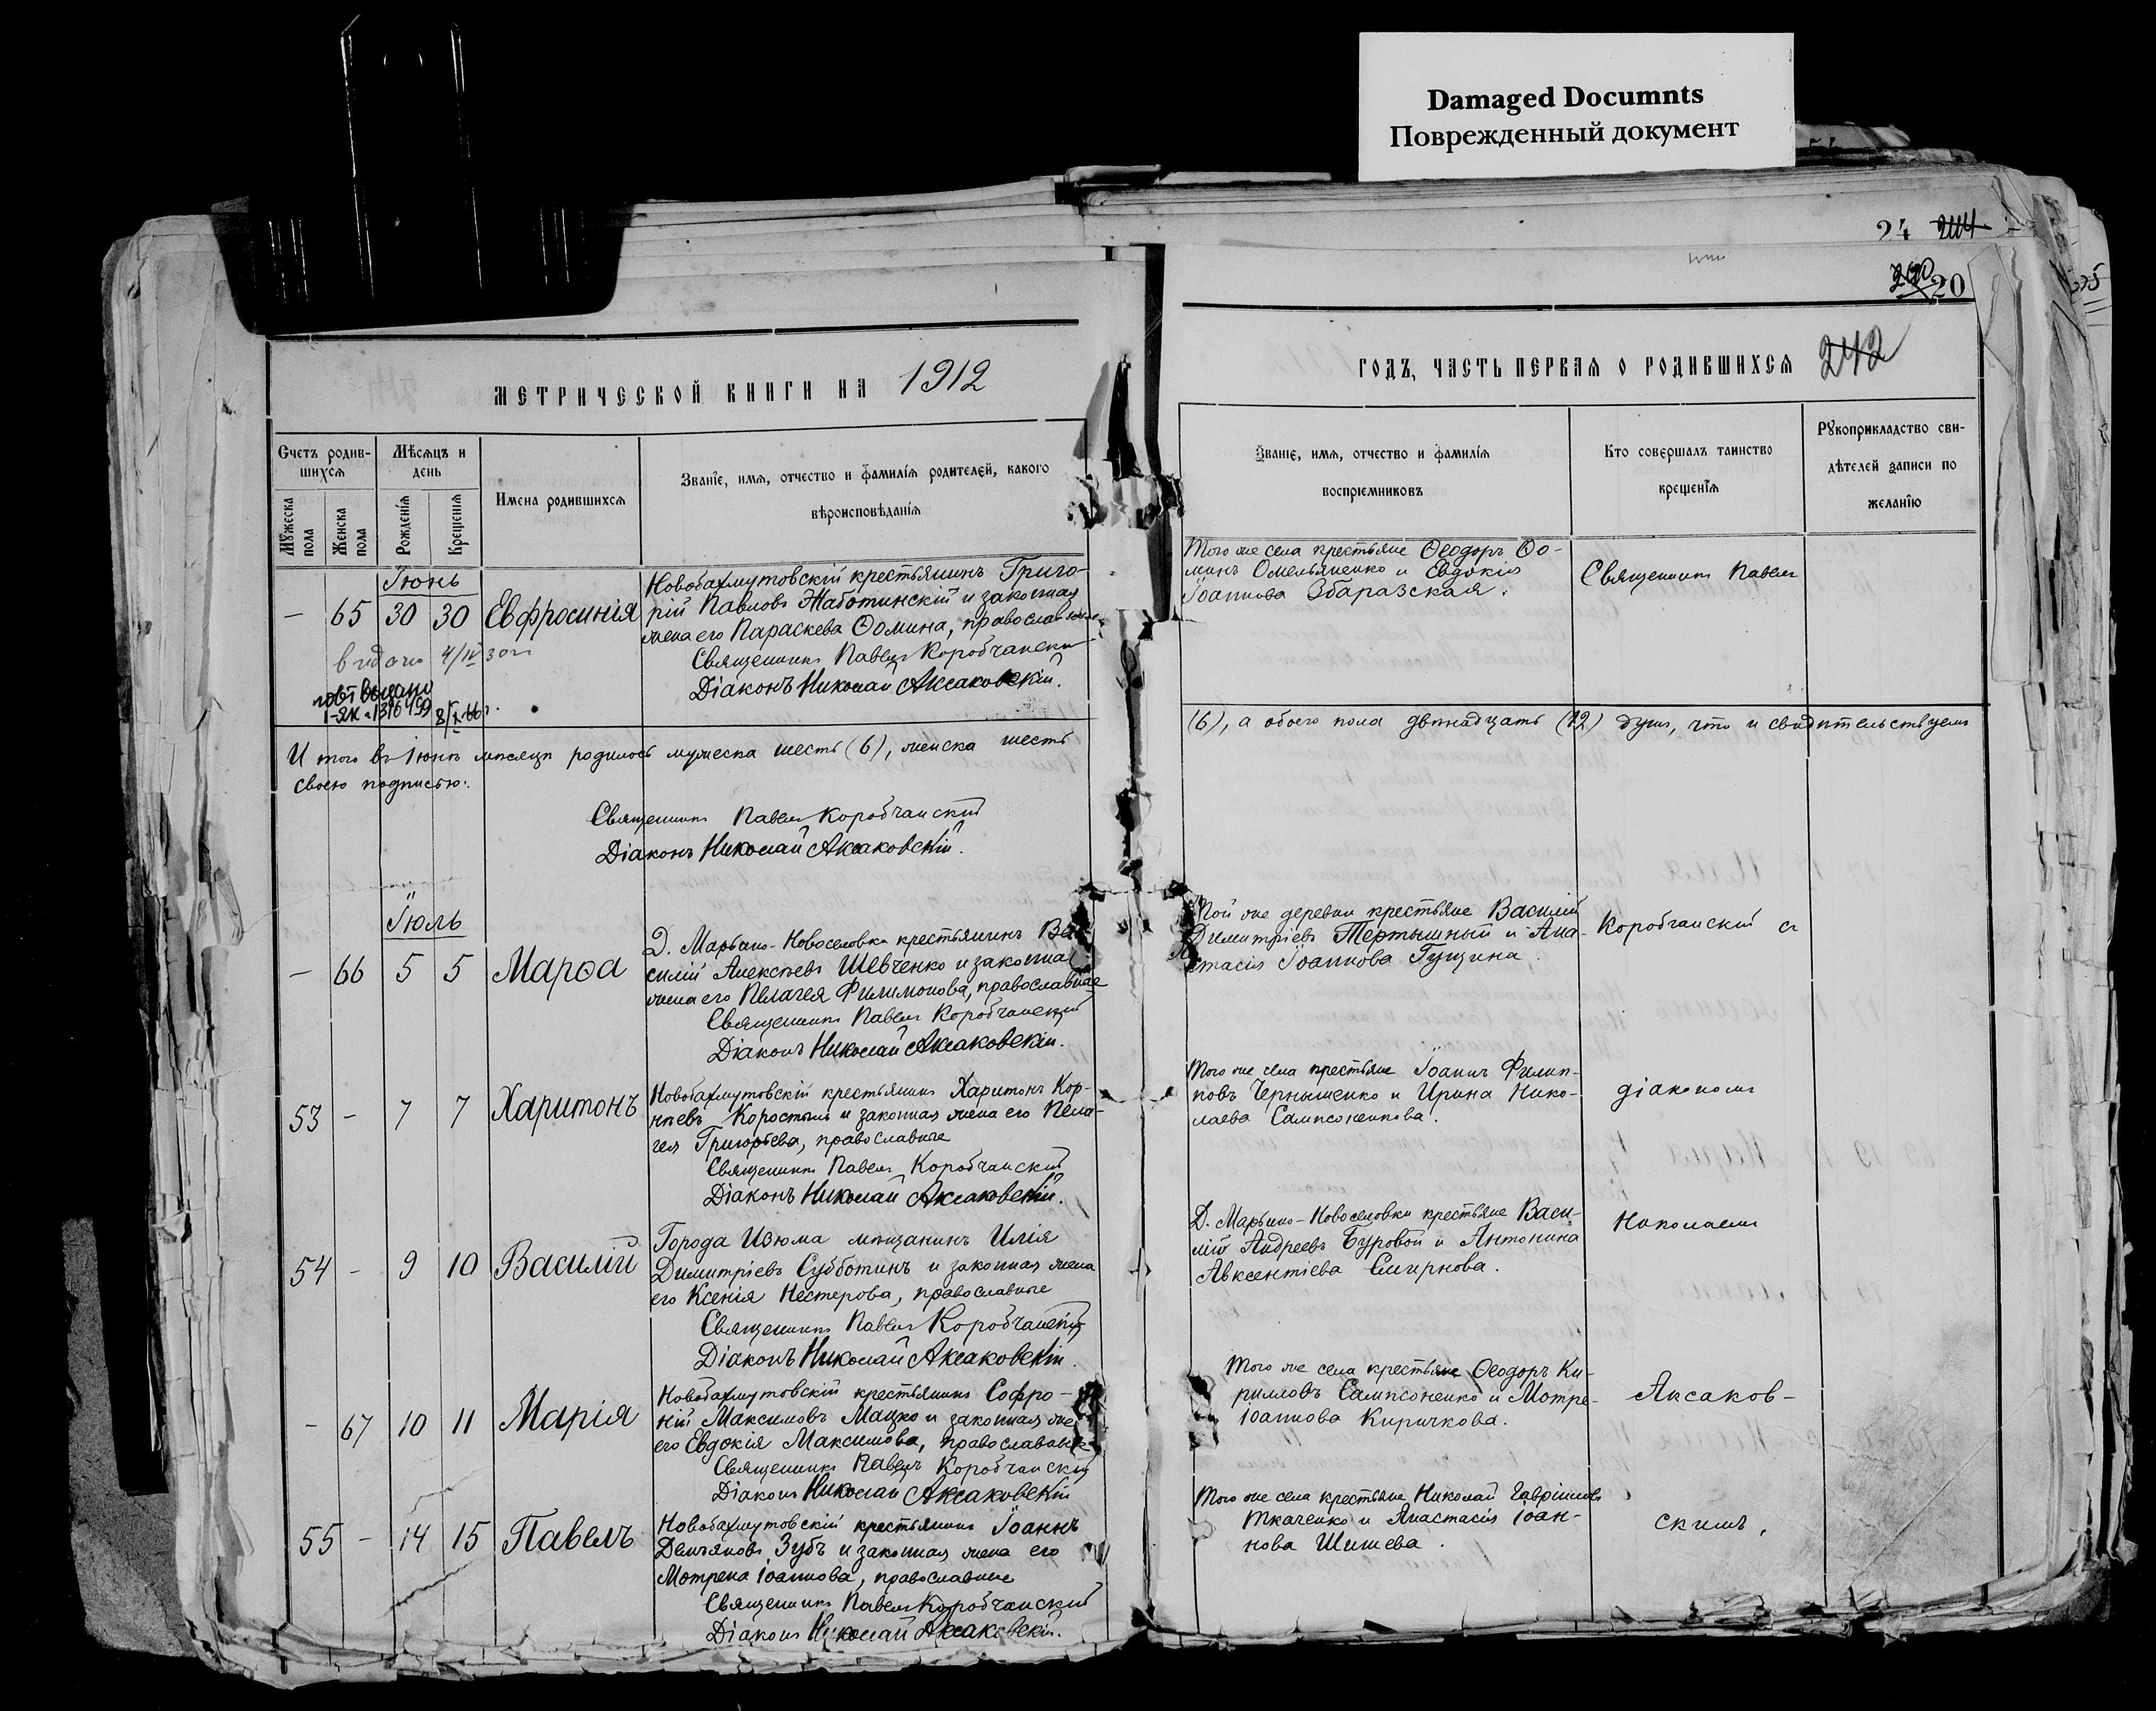 Damaged Documnts
Поврежденный документ
24 244
240 20
МЕТРИЧЕСКОЙ КНИГИ НА 1912
Счетъ родив-
шихся
Мѣсяцъ и
день
Мужеска
пола
Женска
пола
Рожденія
Крещенія
Имена родившихся
Званіе, имя, отчество и фамилія родителей, какого
вѣроисповѣданія
Іюнь
— 65 30 30 Евфросинія
Новобахмутовскій крестьянинъ Григо-
рій Павловъ Жаботинскій и законная
жена его Параскева Ѳомина, православные
Священникъ Павелъ Коробчанскій
Діаконъ Николай Аксаковскій.
И того въ Іюнѣ мѣсяцѣ родилось мужеска шесть (6), женска шесть
своею подписью:
Священникъ Павелъ Коробчанскій
Діаконъ Николай Аксаковскій.
Іюль
— 66 5 5 Марѳа
Д. Марьино-Новоселовка крестьянинъ Ва-
силій Алексѣевъ Шевченко и законная
жена его Пелагея Филимонова, православные
Священникъ Павелъ Коробчанскій
Діаконъ Николай Аксаковскій.
53 — 7 7 Харитонъ
Новобахмутовскій крестьянинъ Харитонъ Кор-
нѣевъ Коростыль и законная жена его Пела-
гея Григорьева, православные
Священникъ Павелъ Коробчанскій
Діаконъ Николай Аксаковскій.
54 — 9 10 Василій
Города Изюма мѣщанинъ Илія
Димитріевъ Субботинъ и законная жена
его Ксенія Нестерова, православные
Священникъ Павелъ Коробчанскій
Діаконъ Николай Аксаковскій.
— 67 10 11 Марія
Новобахмутовскій крестьянинъ Софро-
ній Максимовъ Мацко и законная же
его Евдокія Максимова, православные
Священникъ Павелъ Коробчанскій
Діаконъ Николай Аксаковскій
55 — 14 15 Павелъ
Новобахмутовскій крестьянинъ Іоаннъ
Демьяновъ Зубъ и законная жена его
Мотрена Іоаннова, православные
Священникъ Павелъ Коробчанскій
Діаконъ Николай Аксаковскій.
ГОДЪ, ЧАСТЬ ПЕРВАЯ О РОДИВШИХСЯ 242
Званіе, имя, отчество и фамилія
воспріемниковъ
Кто совершалъ таинство
крещенія
Рукоприкладство сви-
дѣтелей записи по
желанію
Того же села крестьяне Ѳеодоръ Ѳо-
минъ Омельяненко и Евдокія
Іоаннова Збаразская.
Священникъ Павелъ
(6), а обоего пола двѣнадцать (12) душъ, что и свидѣтельствуемъ
Той же деревни крестьяне Василій
Димитріевъ Тертышный и Ана-
стасія Іоаннова Гущина.
Коробчанскій съ
Того же села крестьяне Іоаннъ Филип-
повъ Чернышенко и Ирина Нико-
лаева Сампсоненкова.
діакономъ
Д. Марьино-Новоселовки крестьяне Васи-
лій Андреевъ Буровой и Антонина
Авксентіева Смирнова.
Николаемъ
Того же села крестьяне Ѳеодоръ Ки-
рилловъ Сампсоненко и Мотре-
Іоаннова Киричкова.
Аксаков-
Того же села крестьяне Николай Гавріиловъ
Ткаченко и Анастасія Іоан-
нова Шишева.
скимъ,